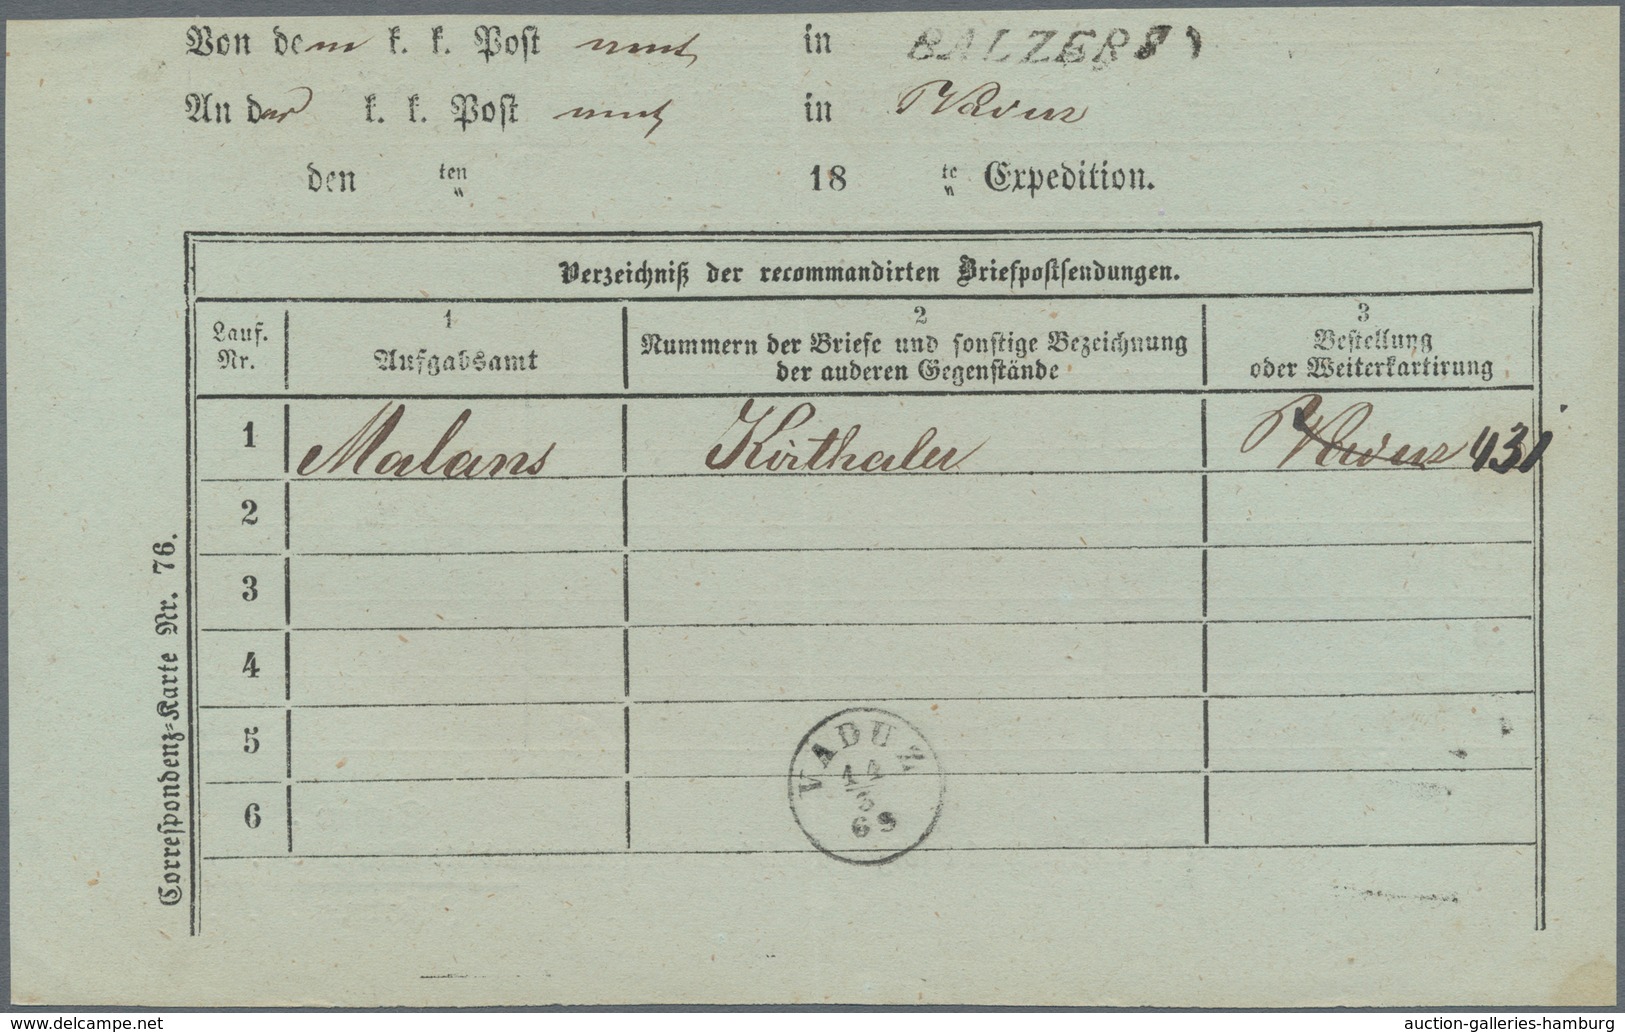 Von dem k. k. Post amt in BALZERS
An das k. k. Post amt in Vaduz
den ten 18 te Expedition.
Verzeichniß der recommandirten Briefpostsendungen.
Lauf. Nr.
1
Aufgabsamt
2
Nummern der Briefe und sonstige Bezeichnung
der anderen Gegenstände
3
Bestellung
oder Weiterkartirung
1 Malans Kirthaler Vaduz 431
2
3
4
5
6
VADUZ
14/5
69
Correspondenz-Karte Nr. 76.
delcampe.net
auction-galleries-hamburg